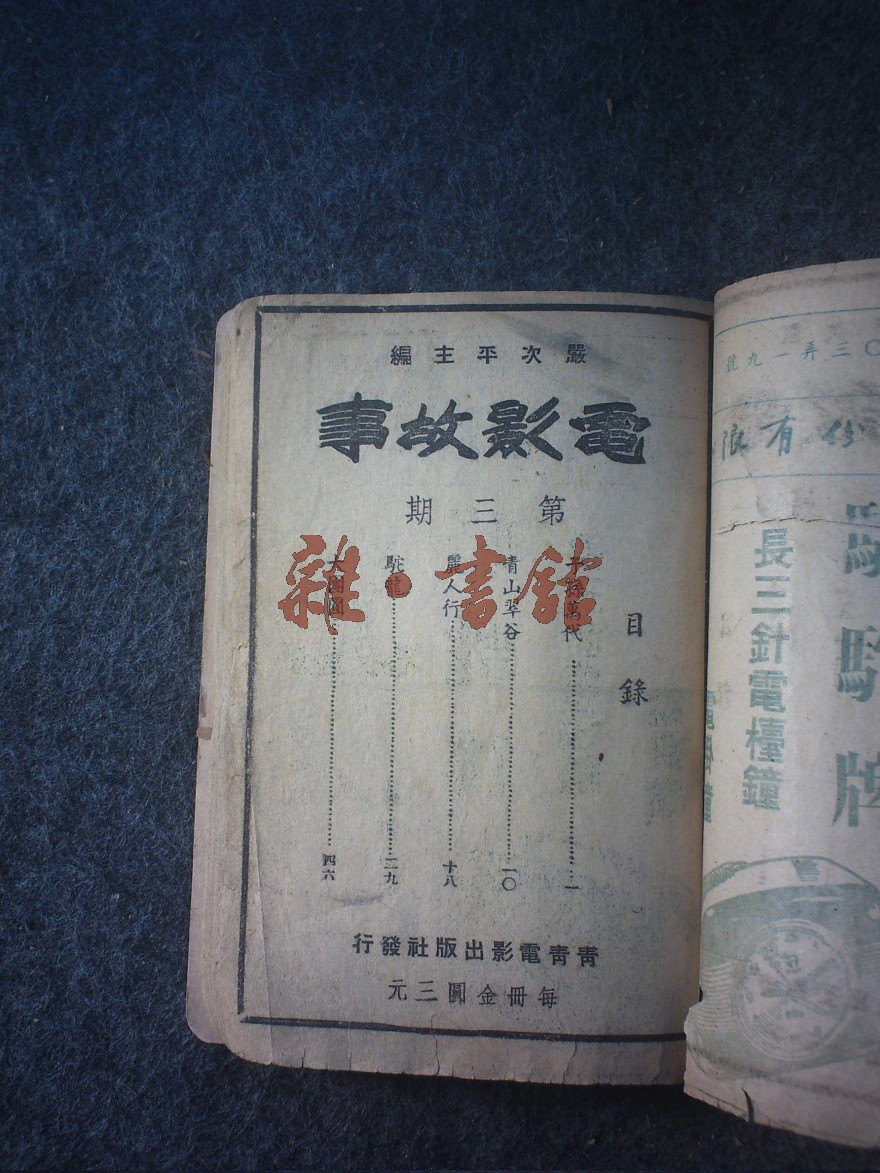 嚴次平主編
電影故事
第三期
目錄
子孫萬代……一
青山翠谷……一〇
麗人行……十八
駝龍……二九
大團圓……四六
青青電影出版社發行
每冊金圓三元
雜·書館
〇三弄一九號
份有限
牌
長三針電檯鐘